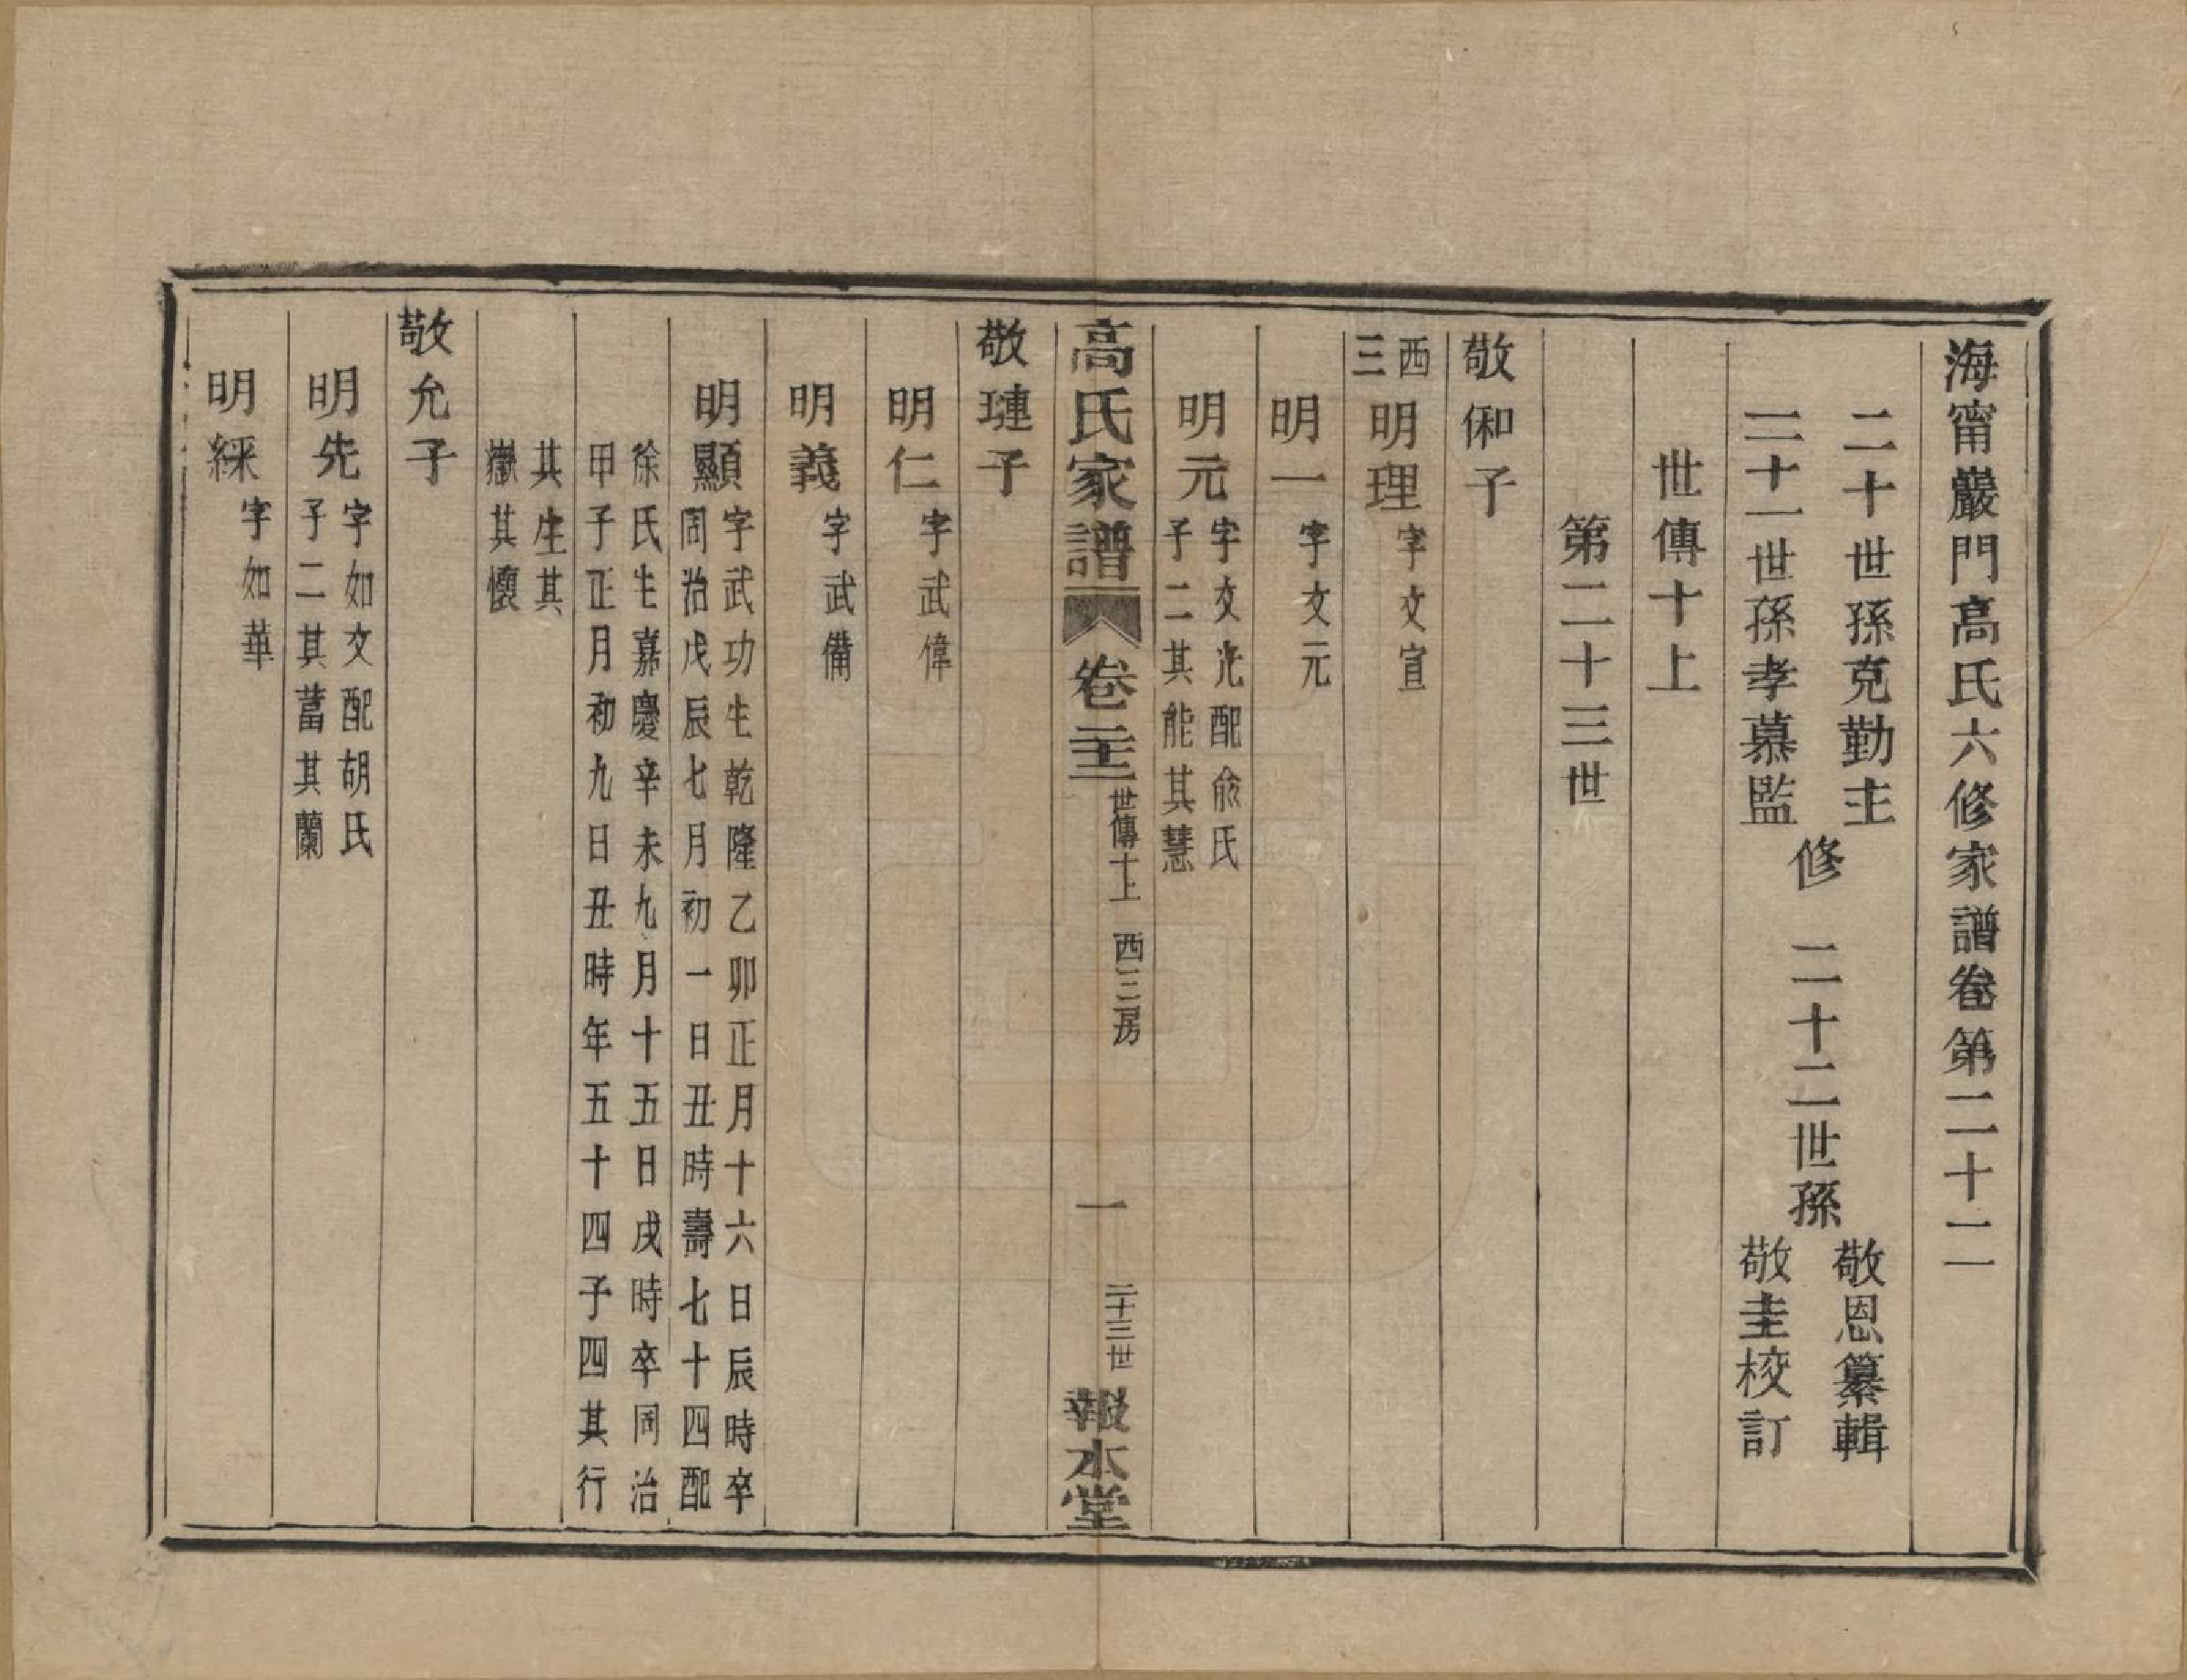 海甯巖門高氏六修家譜卷第二十二
二十世孫克勤主
二十一世孫孝慕監
修
二十二世孫
敬恩纂輯
敬圭校訂
世傳十上
第二十三世
敬俰子
西三
明理 字文宣
明一 字文元
明元 字文光配俞氏
子二其能其慧
高氏家譜 卷二十二 世傳十上 西三房 一 二十三世 報本堂
敬璉子
明仁 字武偉
明義 字武備
明顯 字武功生乾隆乙卯正月十六日辰時卒
同治戊辰七月初一日丑時壽七十四配
徐氏生嘉慶辛未九月十五日戌時卒同治
甲子正月初九日丑時年五十四子四其行
其生其
嶽其懷
敬允子
明先 字如文配胡氏
子二其蓄其蘭
明綵 字如華